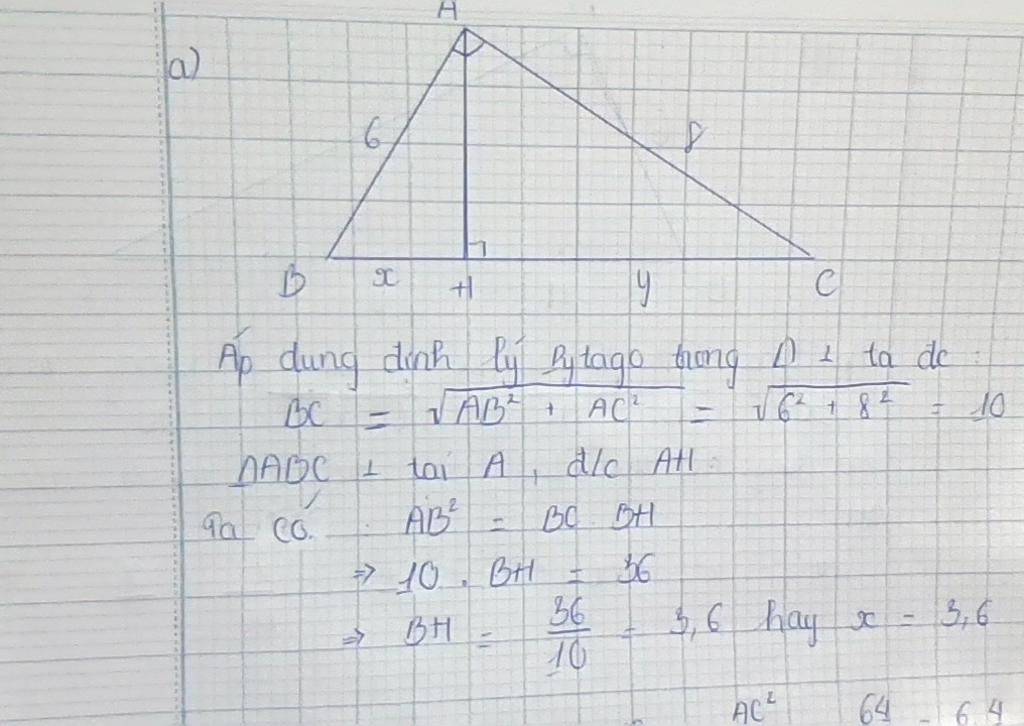 A
a)
6
8
B x H y C
Áp dung dinh lý Pytago trong Δ ⊥ ta dc :
BC = √AB² + AC² = √6² + 8² = 10
ΔABC ⊥ tai A, d/c AH.
Ta có : AB² = BC . BH
⇒ 10 . BH = 36
⇒ BH = 36/10 = 3,6 hay x = 3,6
AC² 64 = 6,4